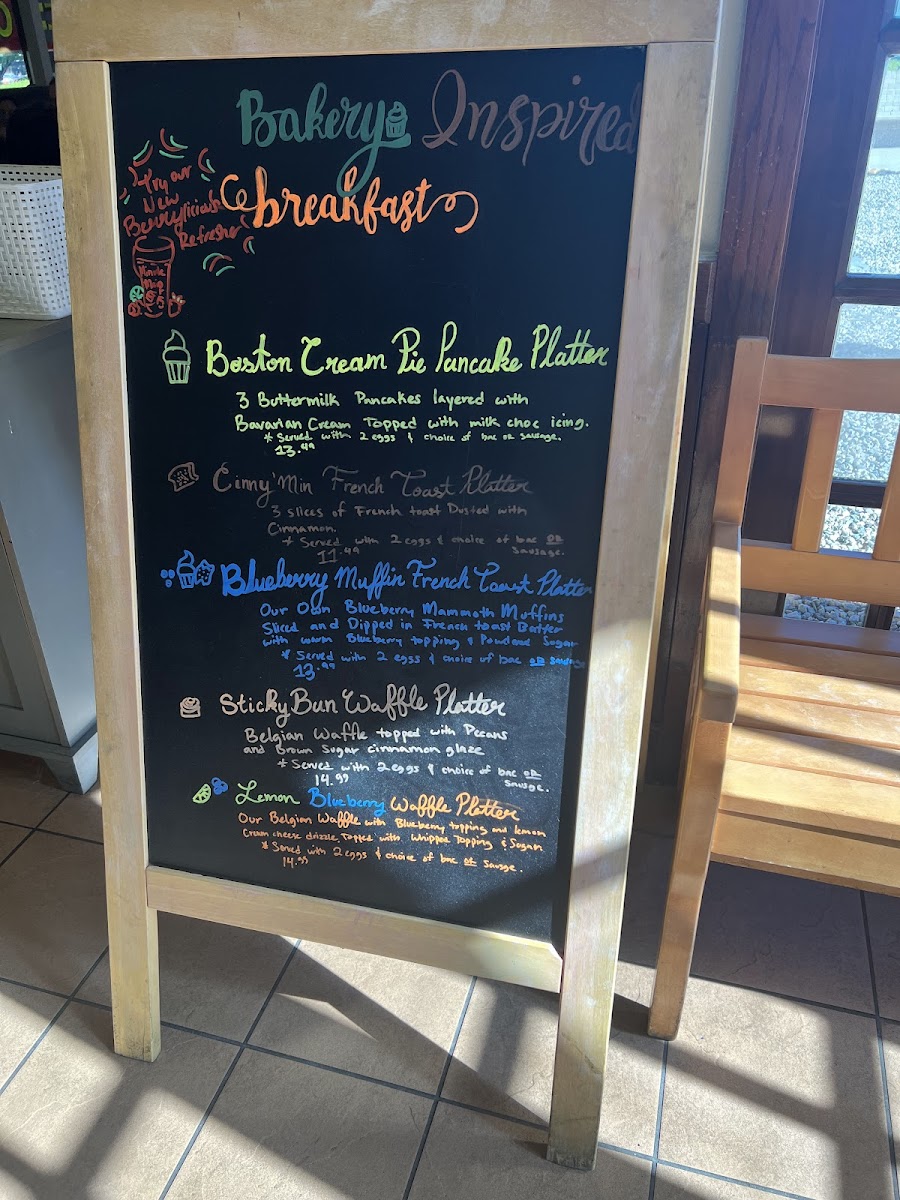 Bakery Inspired
breakfast
Try our
New
Berrylicious
Refresher
Boston Cream Pie Pancake Platter
3 Buttermilk Pancakes layered with
Bavarian Cream Topped with milk choc icing.
* Served with 2 eggs & choice of bac or sausage.
13.49
Cinny'Min French Toast Platter
3 slices of French toast Dusted with
Cinnamon.
* Served with 2 eggs & choice of bac or
Sausage.
11.49
Blueberry Muffin French Toast Platter
Our Own Blueberry Mammoth Muffins
Sliced and Dipped in French toast Batter
with warm Blueberry topping & Powdered Sugar
* Served with 2 eggs & choice of bac or sausage
13.99
Sticky Bun Waffle Platter
Belgian Waffle topped with Pecans
and Brown Sugar cinnamon glaze
* Served with 2 eggs & choice of bac or
Sausage.
14.99
Lemon Blueberry Waffle Platter
Our Belgian Waffle with Blueberry topping and lemon
Cream cheese drizzle Topped with Whipped Topping & Sugar.
* Served with 2 eggs & choice of bac or Sausge.
14.99